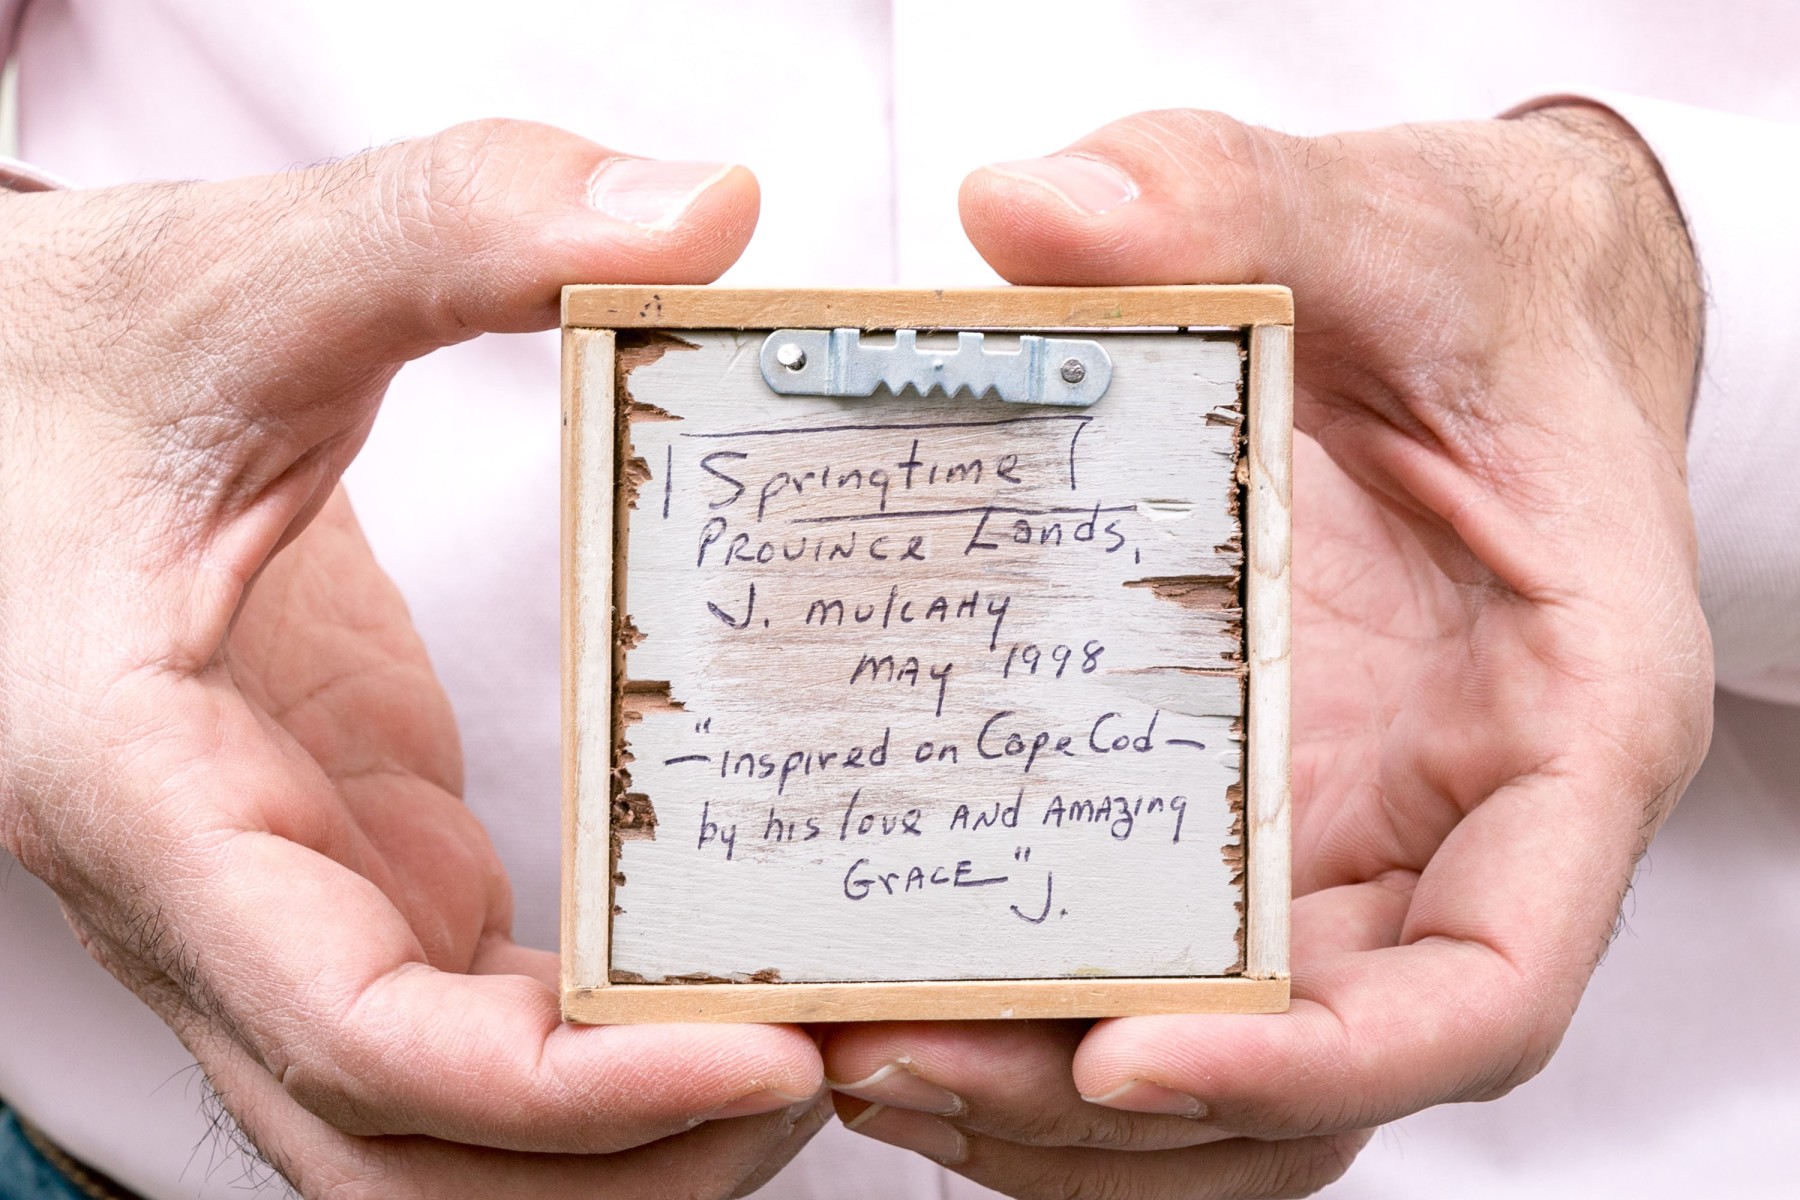 Springtime
PROVINCE Lands,
J. MulcAHy
MAy 1998
—"inspired on Cape Cod—
by his love ANd AMAzing
GrACE" J.